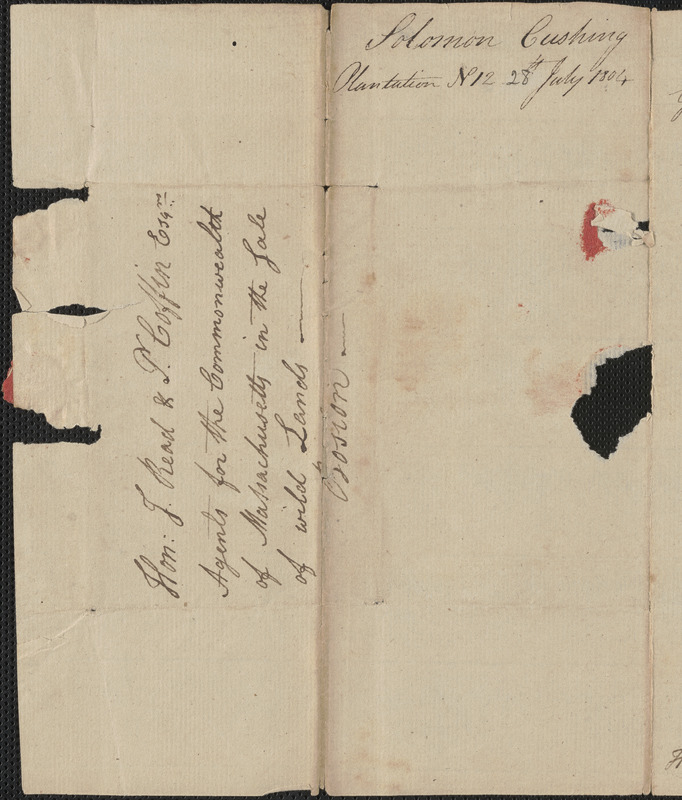 Solomon Cushing
Plantation N 12 28th July 1804
Hon: J. Read & P. Coffin Esqrs
Agents for the Commonwealth
of Massachusetts in the Sale
of wild Lands —
Boston —